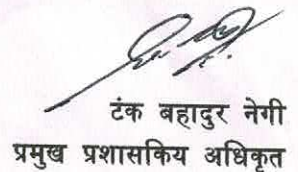 टंक बहादुर नेगी
प्रमुख प्रशासकिय अधिकृत